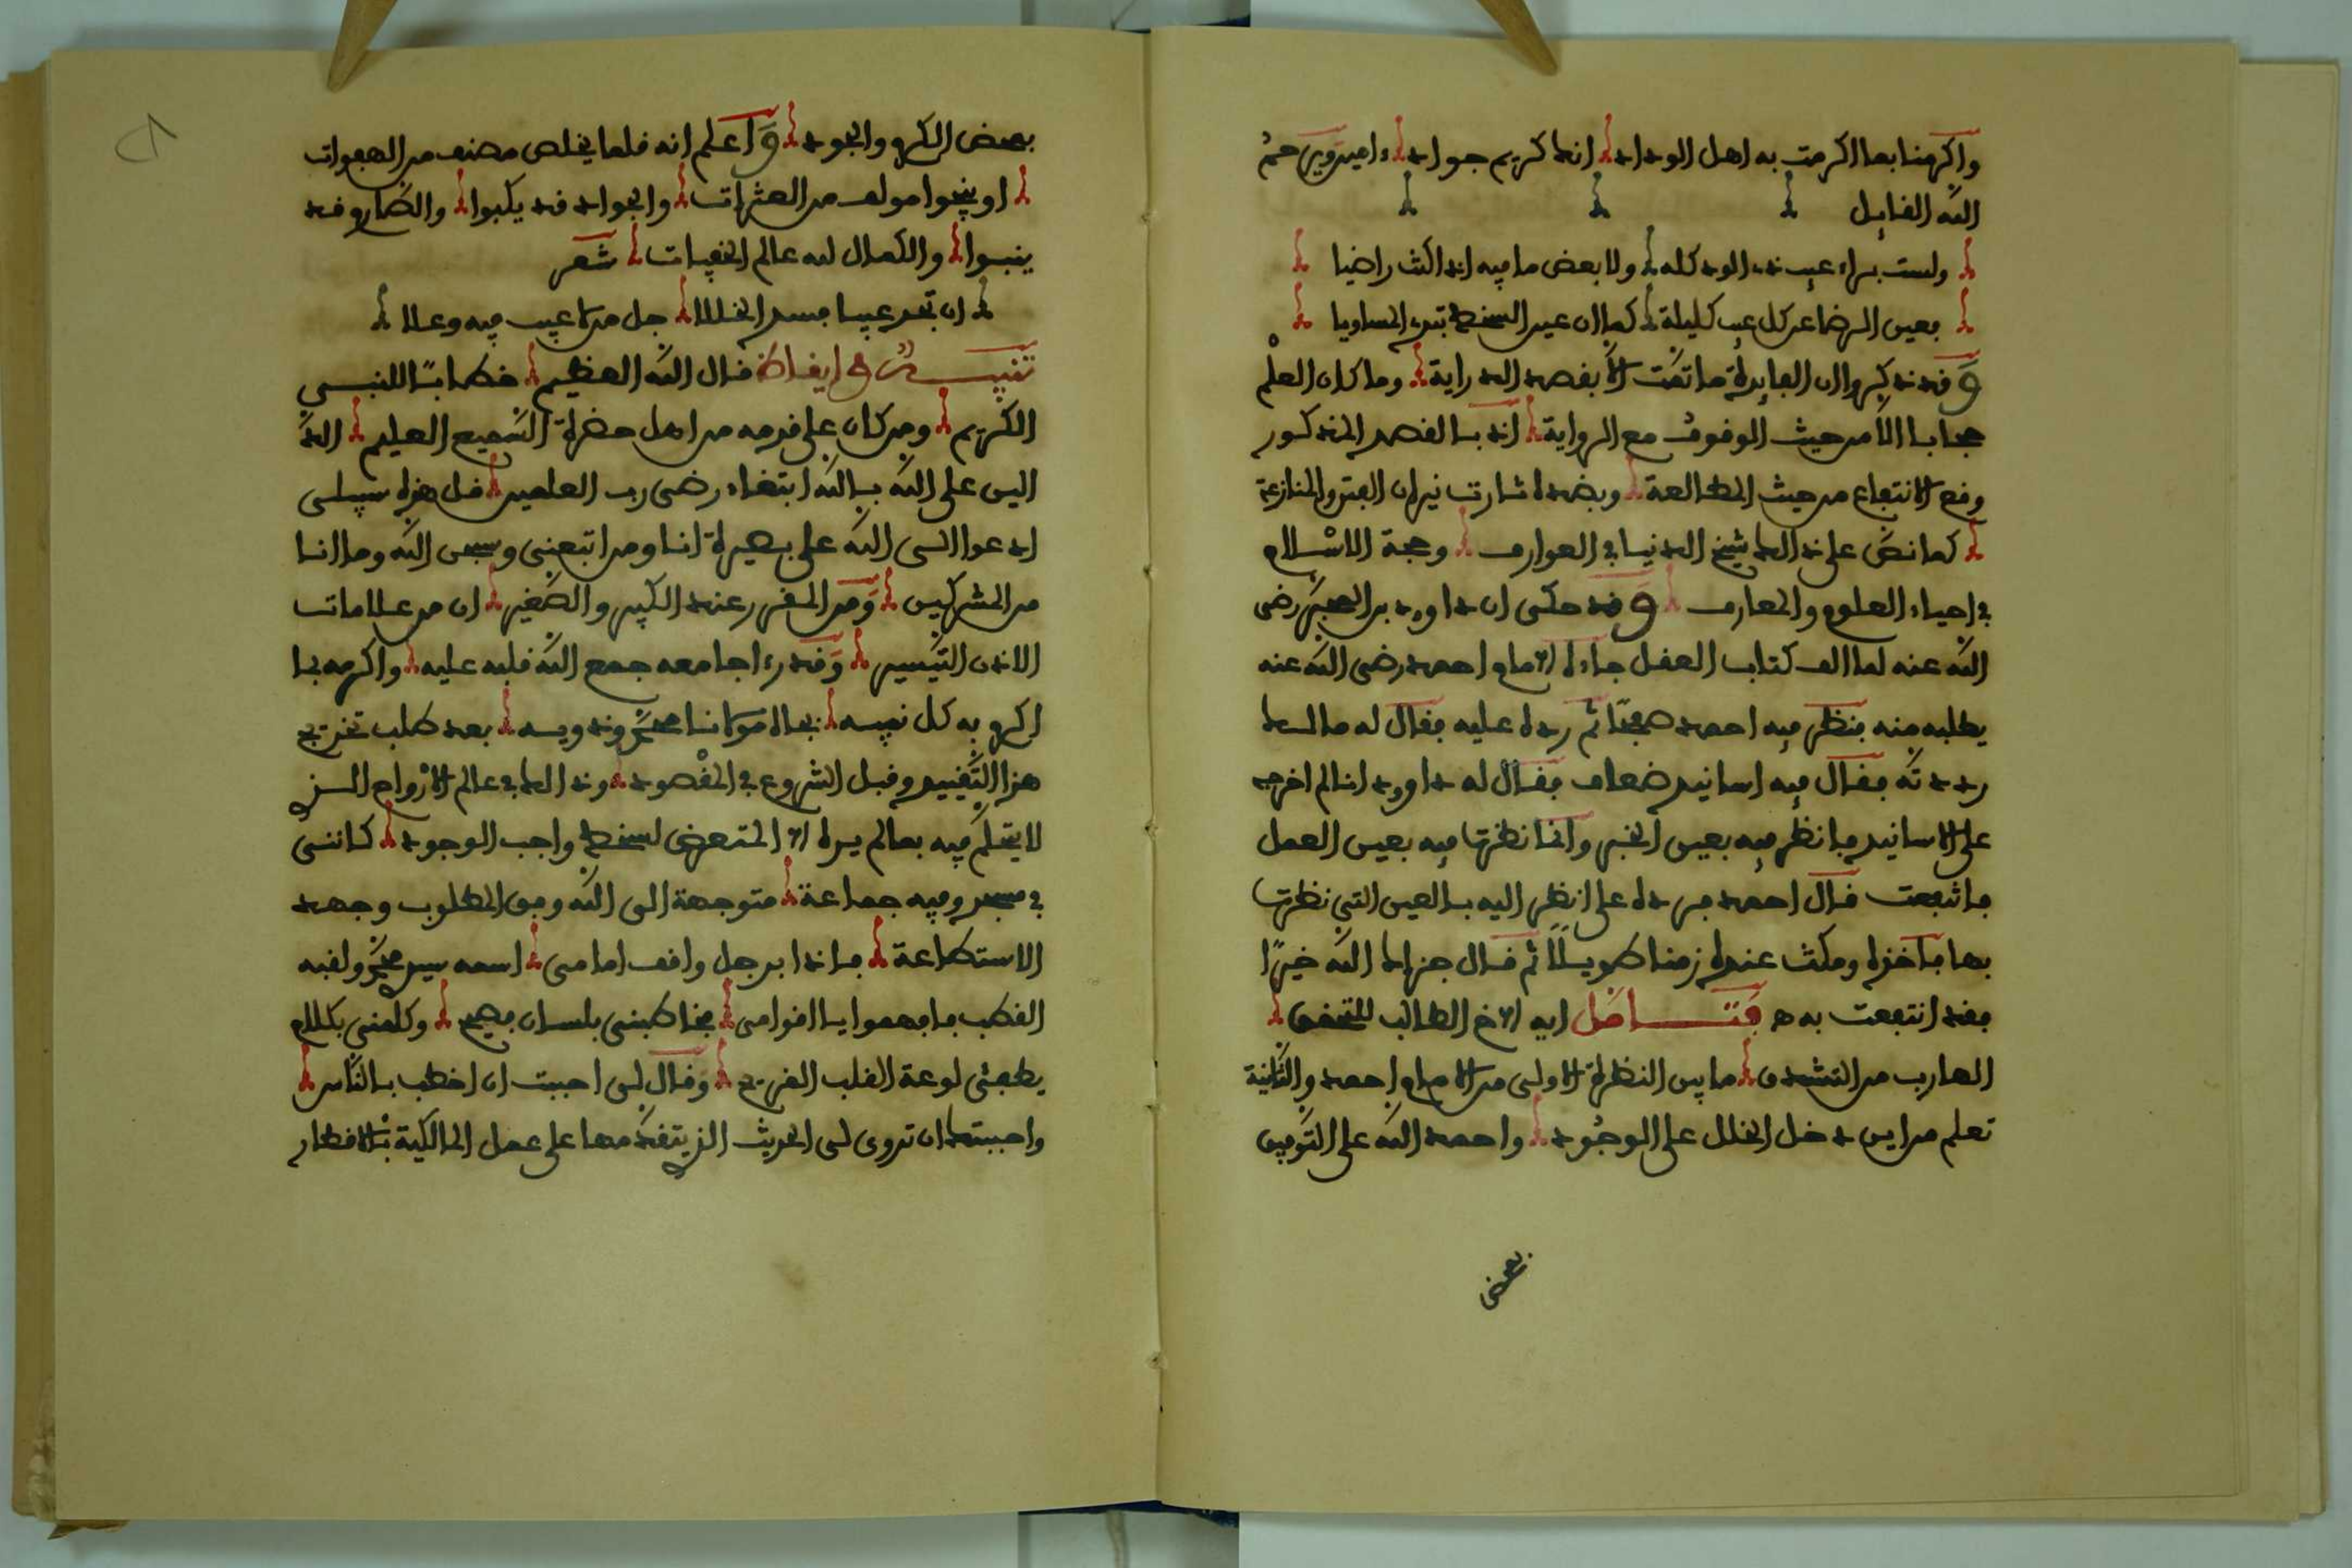 واكرمنا بما اكرمت به اهل الوداد انك كريم جواد ءامين ويرحم
الله القايل
ولست براء عيب ذي الود كله ولا بعض ما فيه اذا كنت راضيا
بعين الرضا عن كل عيب كليلة كما ان عين السخط تبدي المساويا
وقد ذكروا ان الفايدة ما تمت الا بقصد الدراية وما كان العلم
حجابا الا من حيث الوقوف مع الرواية اذ بالقصد المذكور
وقع الانتفاع من حيث المطالعة وبضده اثارت نيران الفتن والمنازعة
كما نص على ذالك شيخ الدنيا في العوارف وحجة الاسلام
في احياء العلوم والمعارف وقد حكى ان داوود بن المحبر رضي
الله عنه لما الف كتاب العقل جاءه الامام احمد رضي الله عنه
يطلبه منه فنظر فيه احمد صفحا ثم رده عليه فقال له مالك
رددته فقال فيه اسانيد ضعاف فقال له داوود انا لم اخرجه
على الاسانيد فانظر فيه بعين الخبر وانما نظرتها فيه بعين العمل
فانتفعت قال احمد فرده على انظر اليه بالعين التي نظرتها
بها فاخذه ومكث عنده زمنا طويلا ثم قال جزاك الله خيرا
فقد انتفعت به ه فتامل ايه الاخ الطالب للتحقيق
الهارب من التشدق ما بين النظرة الاولى من الامام احمد والثانية
تعلم من اين دخل الخلل على الوجود واحمد الله على التوفيق
بعض
بعض الكرم والجود واعلم انه قلما يخلص مصنف من الهفوات
او ينجوا مولف من العثرات والجواد قد يكبوا والصارم قد
ينبوا والكمال لله عالم الخفيات شعر
ان تجد عيبا فسد الخللا جل من لا عيب فيه وعلا
تنبيه في ايقاظ قال الله العظيم خطابا للنبي
الكريم ومن كان على قدمه من اهل حضرة السميع العليم الدا
اليين على الله بالله ابتغاء رضى رب العلمين قل هذه سبيلي
ادعوا الى الله على بصيرة انا ومن اتبعني وسبحن الله وما انا
من المشركين ومن المقرر عند الكبير والصغير ان من علامات
الاذن التيسير وقد رءا جامعه جمع الله قلبه عليه واكرمه بما
اكرم به كل نبيه بجاه مولانا محمد وذويه بعد طلب تخريج
هذا التقييد وقبل الشروع في المقصود وذالك في عالم الارواح الذي
لا يتكلم فيه بما لم يره الا المتعرض لسخط واجب الوجود كانني
في مسجد وفيه جماعة متوجهة الى الله وفق المطلوب وجهد
الاستطاعة فاذا برجل واقف امامي اسمه سيد محمد ولقبه
القطب فافهموا يا اقوامي فخاطبني بلسان فصيح وكلمني بكلام
يطفئ لوعة القلب القريح وقال لي احببت ان اخطب بالناس
واحببتك ان تروى لي الحديث الذي يتقدمها على عمل المالكية بالاقطار